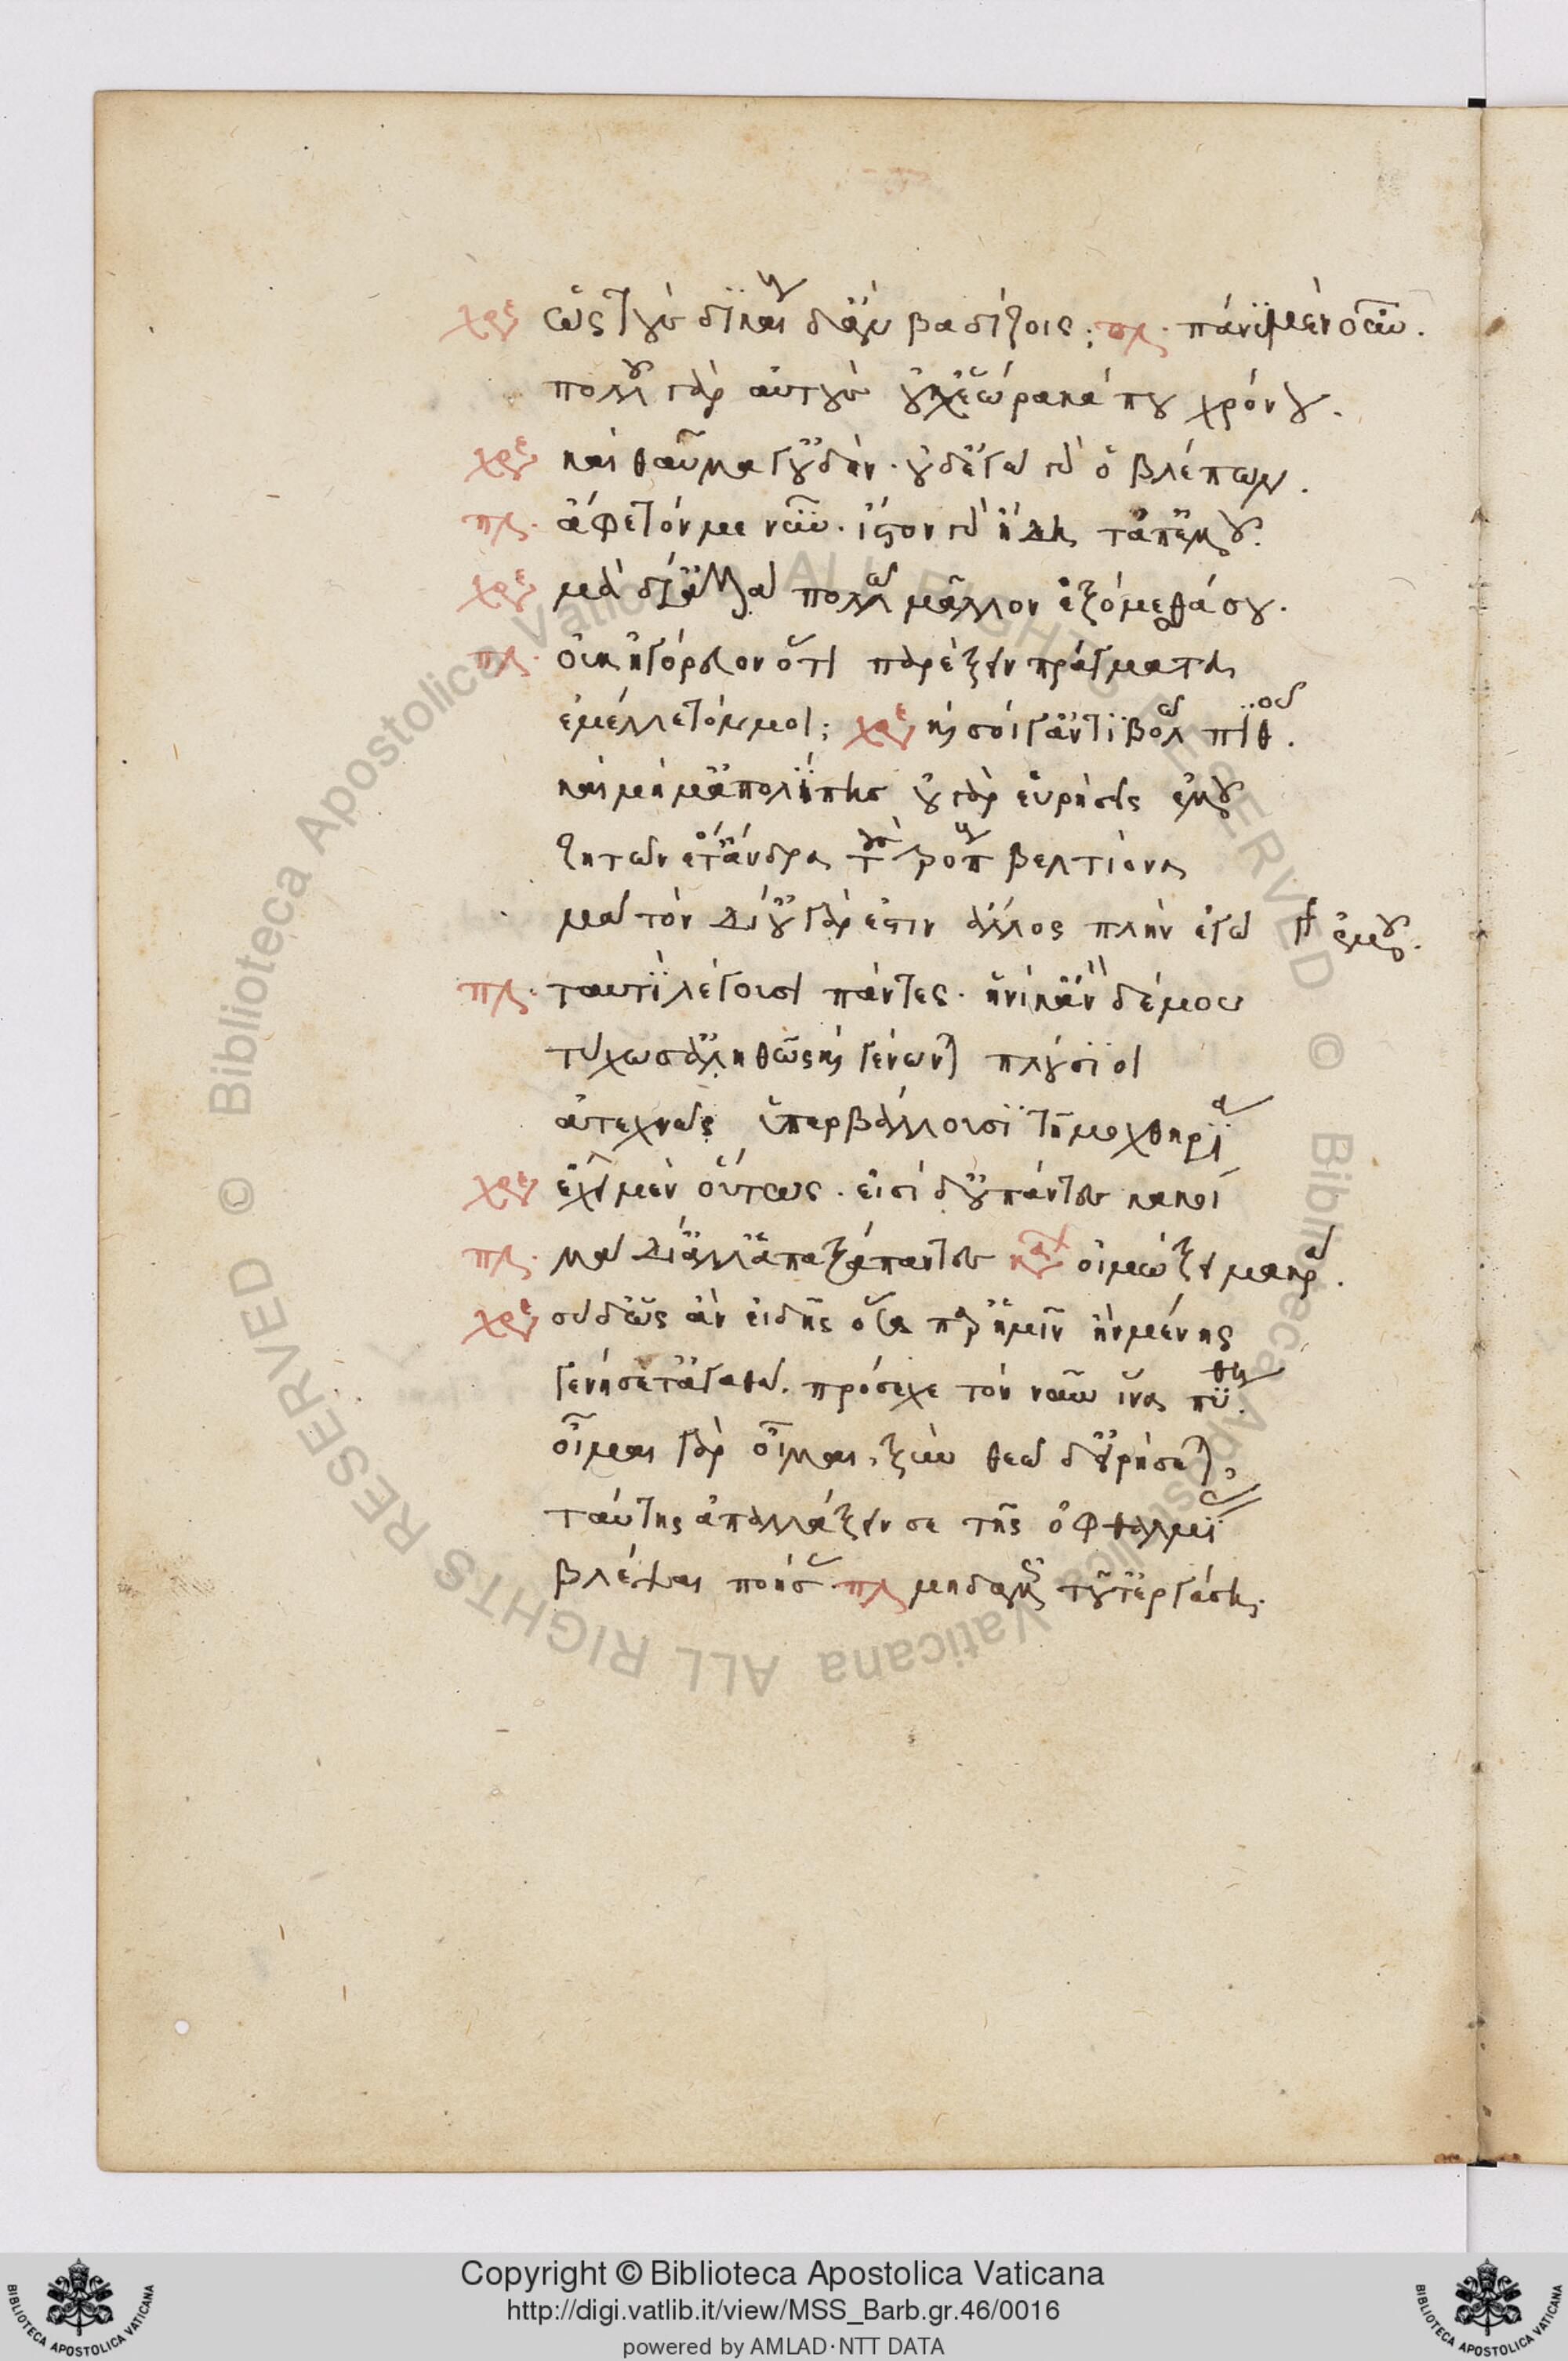 χρε ὡς τοὺς δικαίους ἂν βαδίζοις; πλ. πάνυ μὲν οὖν.
πολλοῦ γὰρ αὐτοὺς οὐχ ἑώρακά που χρόνου.
χρε καὶ θαῦμά γ' οὐδέν· οὐδ' ἐγὼ γὰρ ὁ βλέπων.
πλ. ἄφετόν με νῦν. ἴστον γὰρ ἤδη τἀπ' ἐμοῦ.
χρε μὰ δί' ἀλλὰ πολλῷ μᾶλλον ἑξόμεθά σου.
πλ. οὐκ ἠγόρευον ὅτι παρέξειν πράγματα
ἐμέλλετόν μοι; χρε καὶ σύ γ' ἀντιβολῶ πιθοῦ.
καὶ μή μ' ἀπολίπῃς οὐ γὰρ εὑρήσεις ἐμοῦ
ζητῶν ἔτ' ἄνδρα τοὺς τρόπους βελτίονα
μὰ τὸν Δί' οὐ γάρ ἐστιν ἄλλος πλὴν ἐγώ ἐμοῦ.
πλ. ταυτὶ λέγουσι πάντες. ἡνίκ' ἂν δέ μου
τύχωσ' ἀληθῶς καὶ γένωνται πλούσιοι
ἀτεχνῶς ὑπερβάλλουσι τῇ μοχθηρίᾳ
χρε ἔχει μὲν οὕτως. εἰσὶ δ' οὐ πάντες κακοί
πλ. μὰ Δί' ἀλλ' ἀπαξάπαντες οἰμώξει μακρά.
χρε σὺ δ' ὡς ἂν εἰδῇς ὅσα παρ' ἡμῖν ἢν μένῃς
γενήσετ' ἀγαθά. πρόσεχε τὸν νοῦν ἵνα πύθῃ.
οἶμαι γὰρ οἶμαι, ξὺν θεῷ δ' εἰρήσεται,
ταύτης ἀπαλλάξειν σε τῆς ὀφθαλμίας
βλέψαι ποιήσας πλ μηδαμῶς τοῦτ' ἐργάσῃ.
Copyright © Biblioteca Apostolica Vaticana
http://digi.vatlib.it/view/MSS_Barb.gr.46/0016
powered by AMLAD·NTT DATA